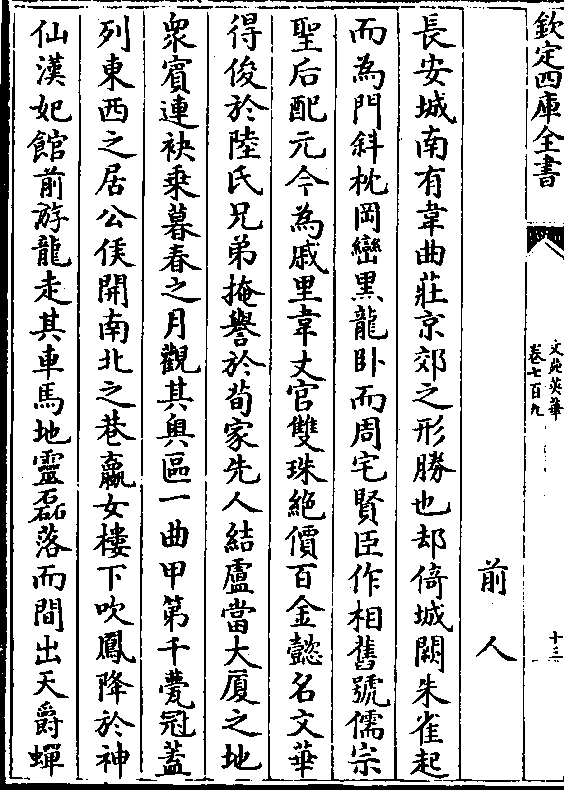 欽定四庫全書
文苑英華
卷七百九
十三
前人
長安城南有韋曲莊京郊之形勝也却倚城闕朱雀起
而為門斜枕岡巒黑龍卧而周宅賢臣作相舊號儒宗
聖后配元今為戚里韋丈官雙珠絶價百金懿名文華
得俊於陸氏兄弟掩譽於荀家先人結廬當大厦之地
衆賓連袂乗暮春之月觀其奥區一曲甲第千甍冠蓋
列東西之居公侯開南北之巷嬴女樓下吹鳳降於神
仙漢妃館前游龍走其車馬地靈磊落而間出天爵蟬